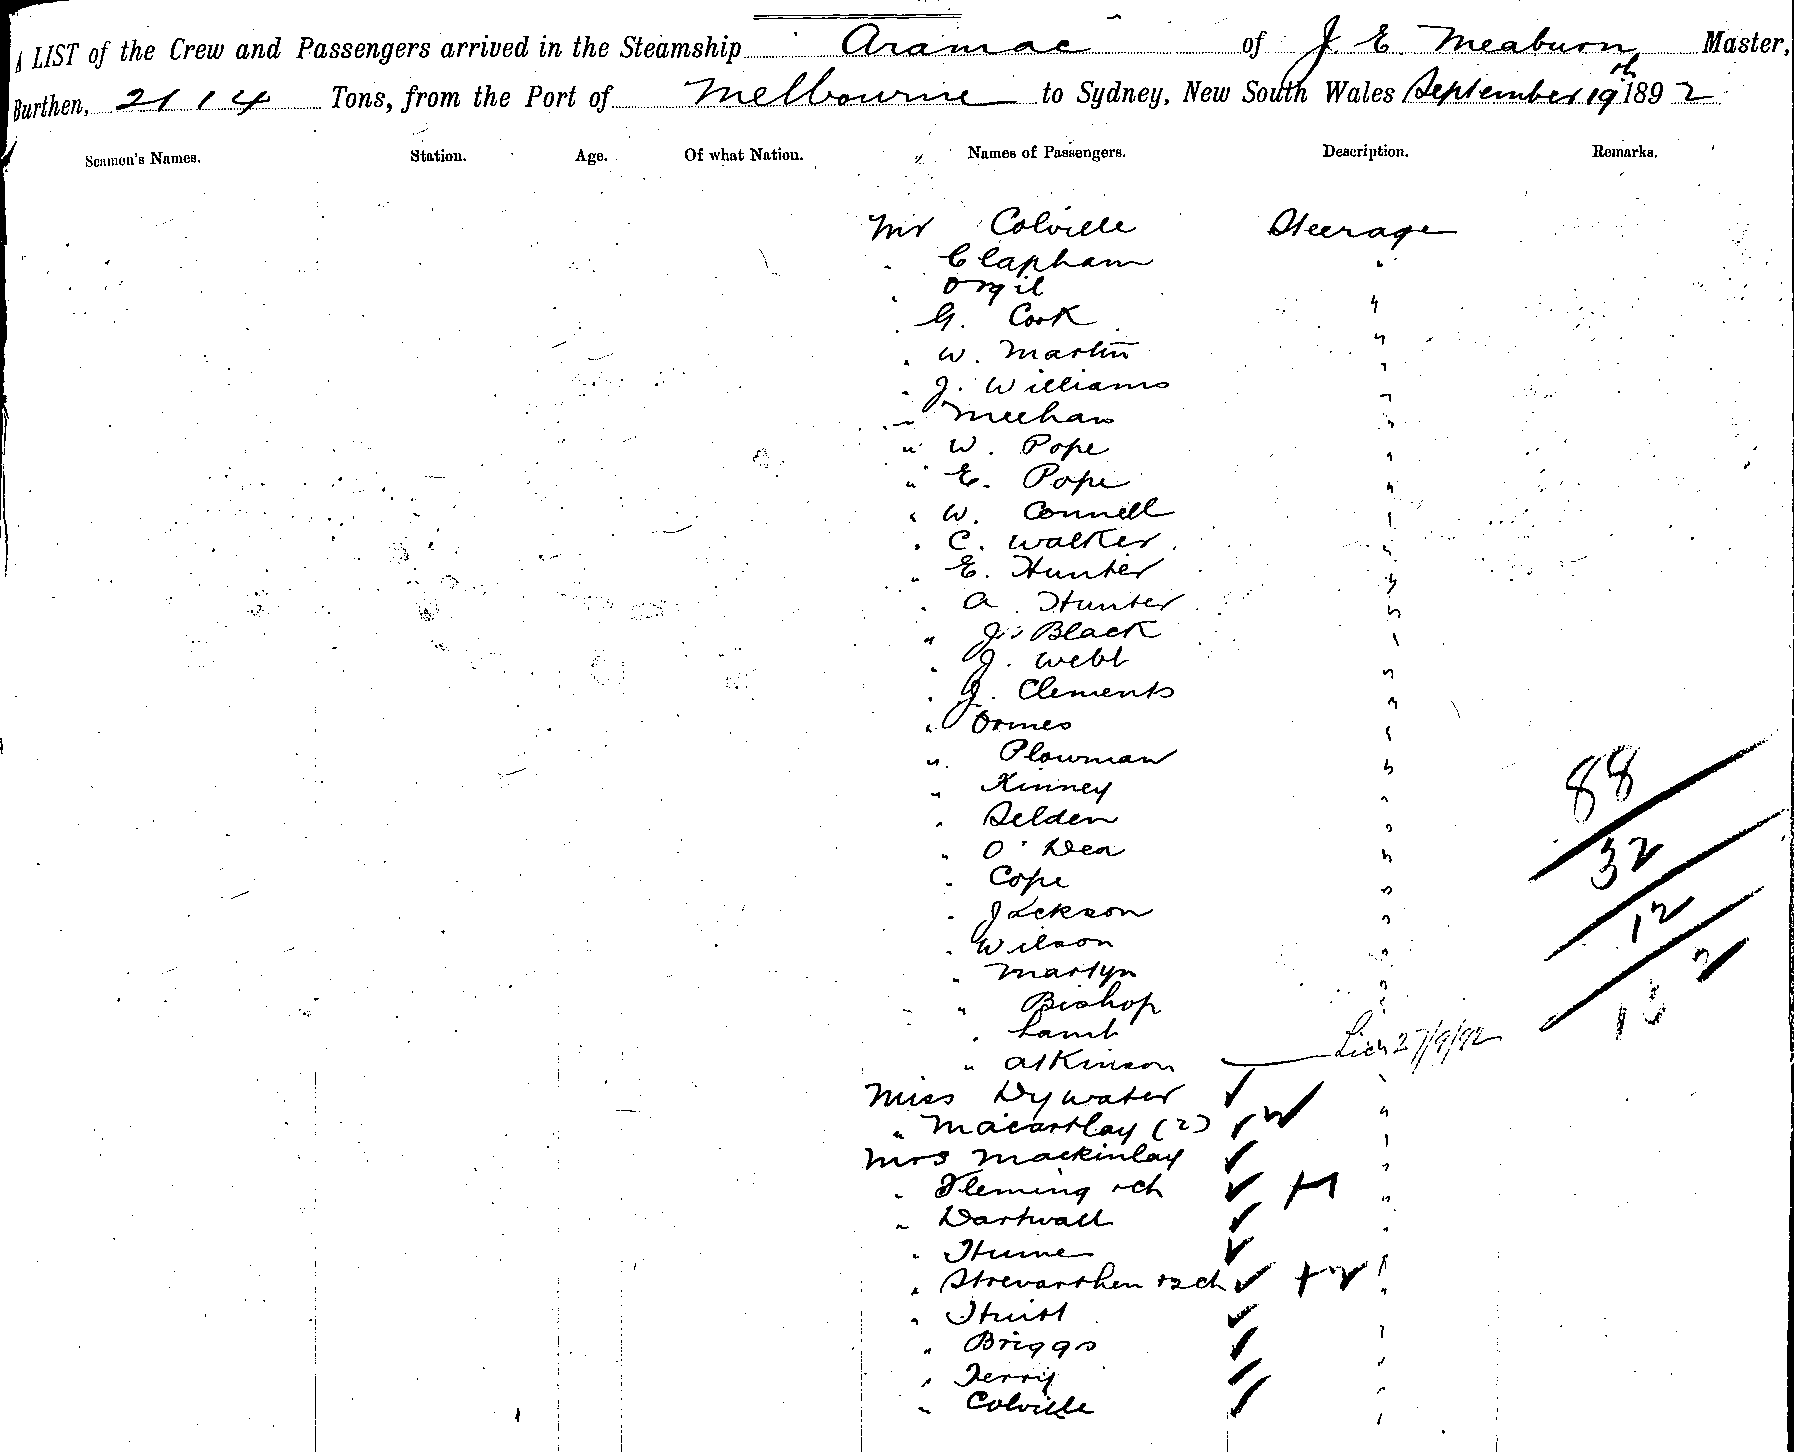 A LIST of the Crew and Passengers arrived in the Steamship Aramac of J. E. Meaburn Master,
Burthen, 2114 Tons, from the Port of Melbourne to Sydney, New South Wales September 19th 1892
Seamen's Names. Station. Age. Of what Nation. Names of Passengers. Description. Remarks.
Mr Colville Steerage
" Clapham "
" Orgil "
" G. Cook "
" W. Martin "
" J. Williams "
" Meehan "
" W. Pope "
" E. Pope "
" W. Connell "
" C. Walker "
" E. Hunter "
" A. Hunter "
" J. Black "
" J. Webb "
" J. Clements "
" Ormes "
" Plowman "
" Kinney "
" Selden "
" O'Dea "
" Cope "
" Jackson "
" Wilson "
" Martyn "
" Bishop "
" Lamb "
" Atkinson 27/9/92
Miss Dywater "
" Macartlay (2) "
Mrs Mackinlay "
" Fleming & ch "
" Dartwall "
" Hume "
" Strevarthen & 2 ch "
" Hurst "
" Briggs "
" Terry "
" Colville "
88
32
12
2